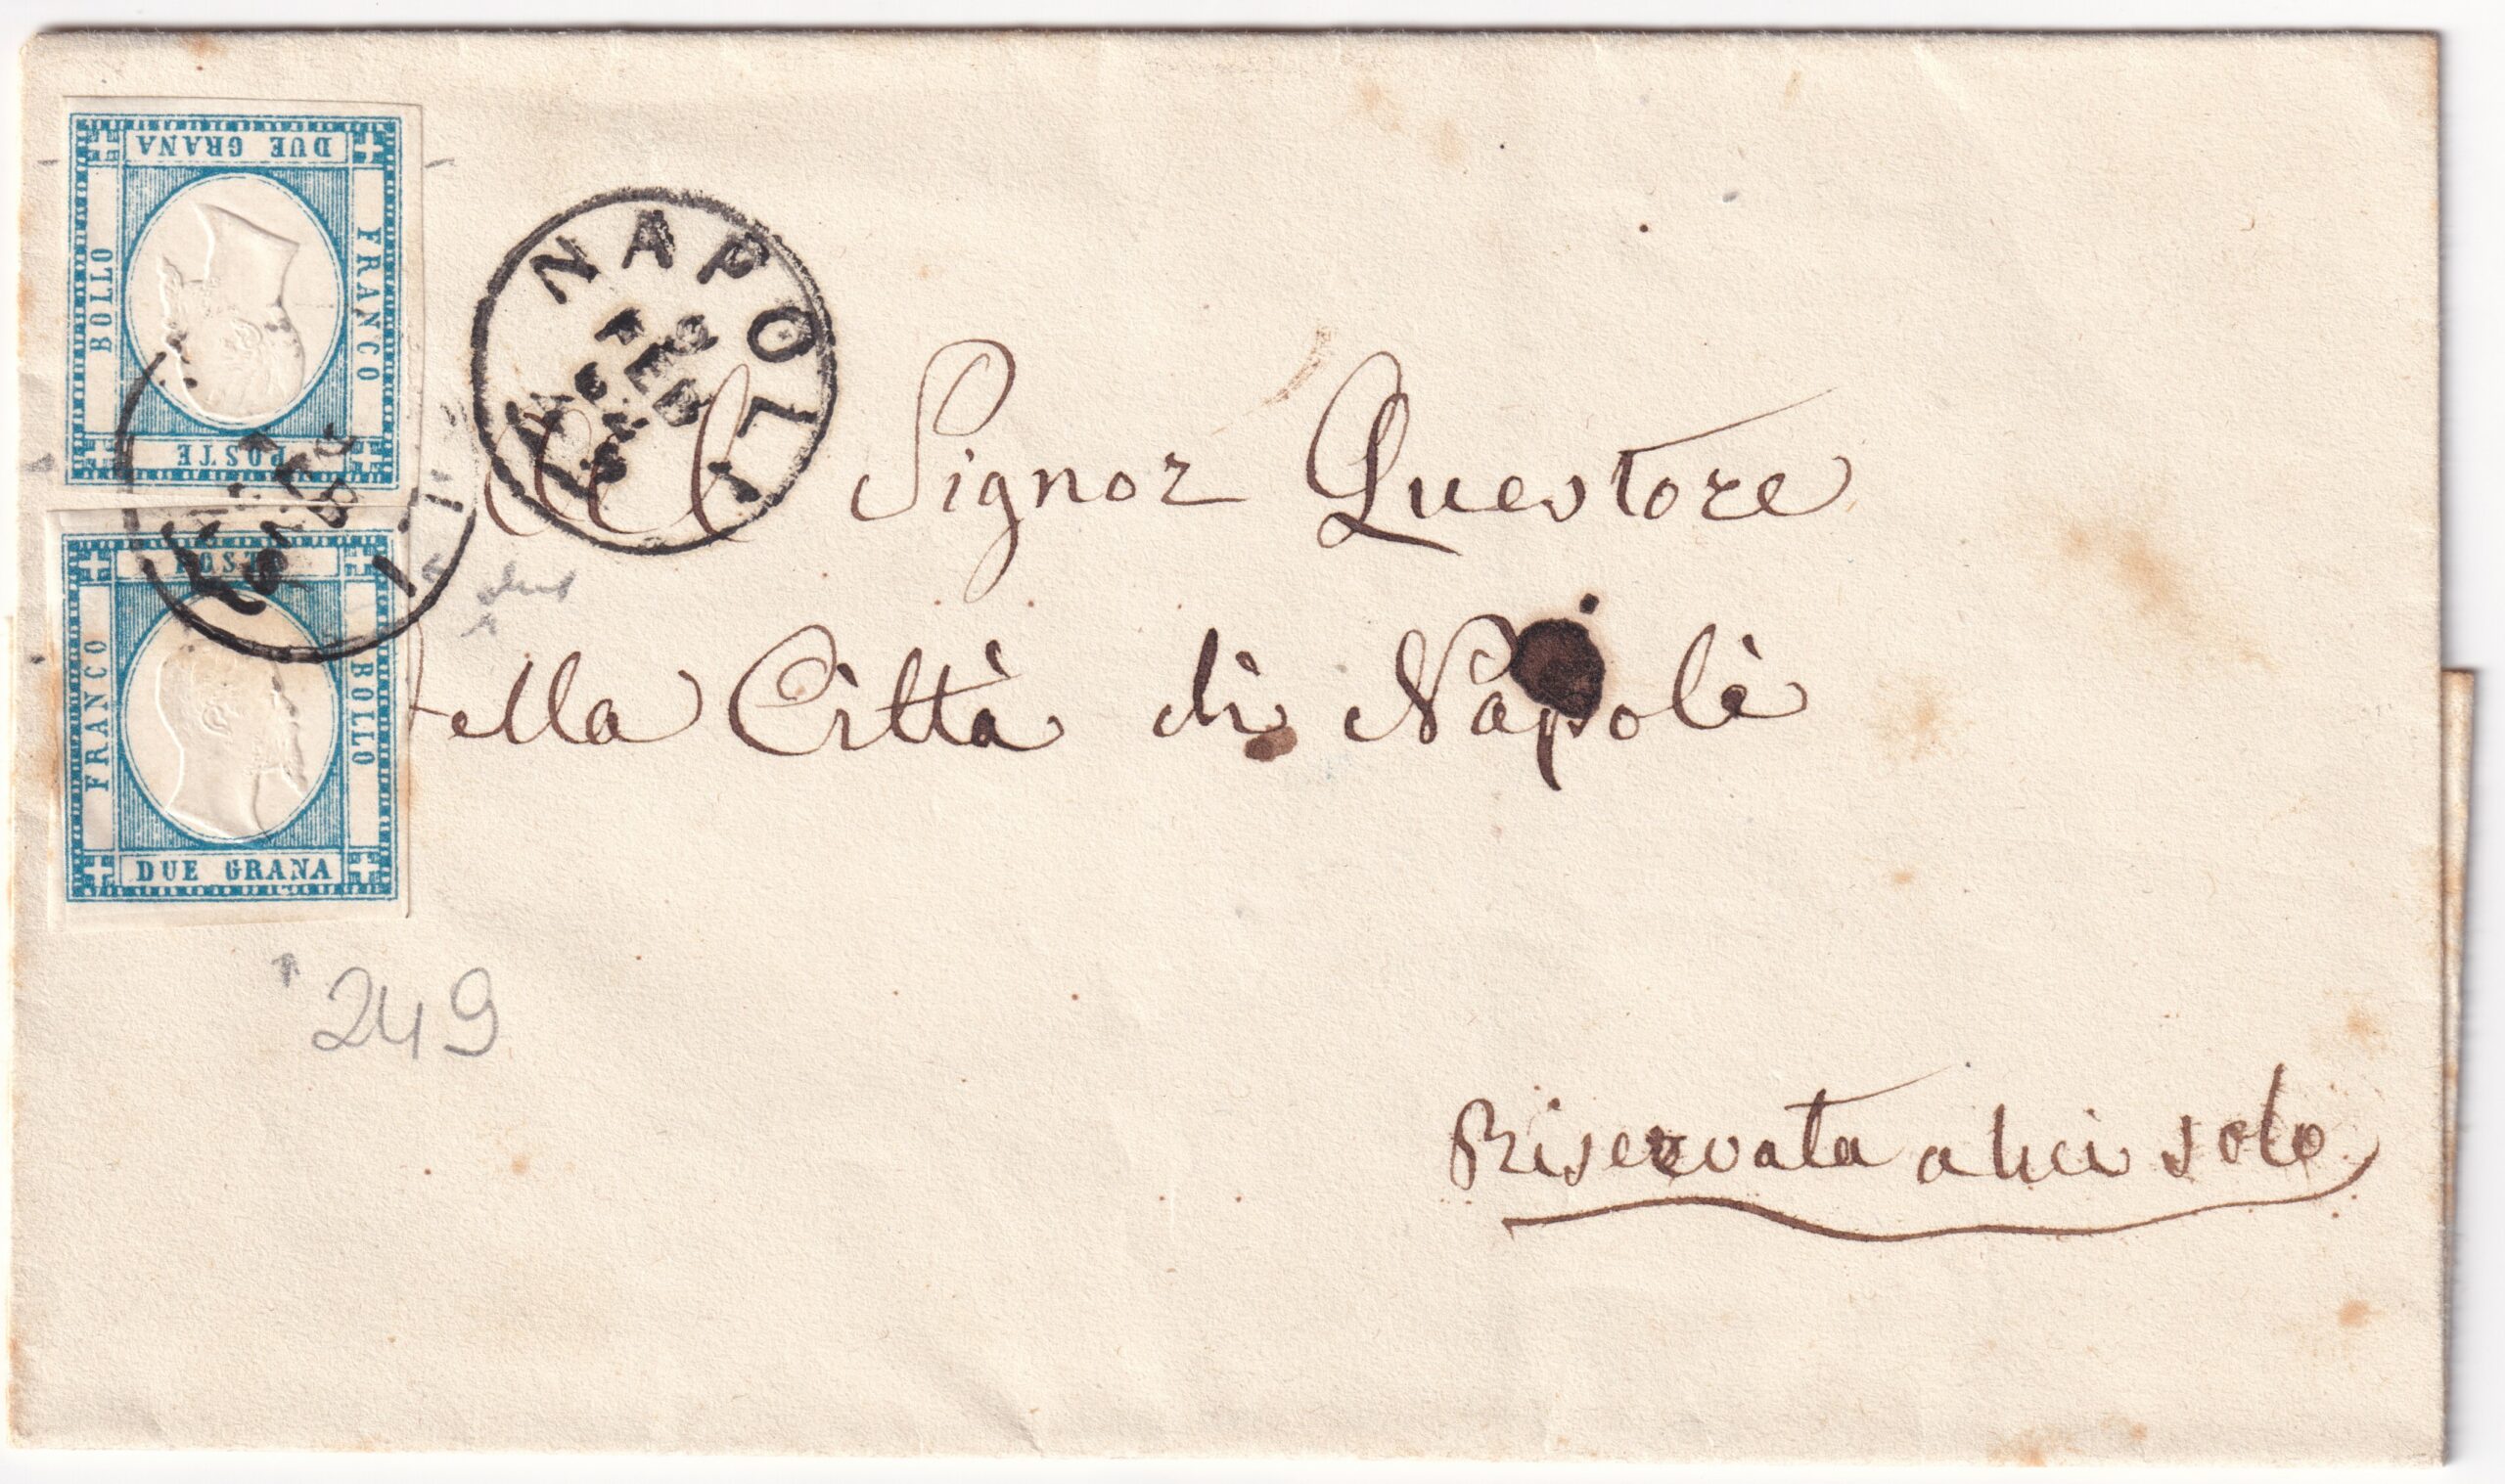 DUE GRANA
BOLLO
FRANCO
POSTE
NAPOLI
9
FEB
POSTE
FRANCO
BOLLO
DUE GRANA
Al Signor Questore
della Città di Napoli
249
Riservata a lui solo